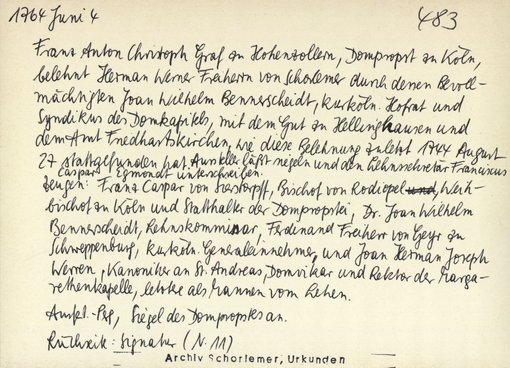 1764 Juni 4
483
Franz Anton Christoph Graf zu Hohenzollern, Dompropst zu Köln,
belehnt Herman Werner Freiherrn von Schorlemer durch deren Bevoll-
mächtigten Joan Wilhelm Bennerscheidt, kurköln. Hofrat und
Syndikus des Domkapitels, mit dem Gut zu Hellinghausen und
dem Amt Friedhartskirchen, wie diese Belehnung zuletzt 1744 August
27 stattgefunden hat. Aussteller läßt siegeln und den Lehnssekretär Franciscus
Caspar Egmondt unterschreiben.
Zeugen: Franz Caspar von Sierstorpff, Bischof von Rodiopel und Weih-
bischof zu Köln und Statthalter der Dompropstei, Dr. Joan Wilhelm
Bennerscheidt, Lehnskommissar, Ferdinand Freiherr von Geyr zu
Schweppenburg, kurköln. Generaleinnehmer, und Joan Herman Joseph
Werren, Kanoniker an St. Andreas, Domvikar und Rektor der Marga-
rethenkapelle, letzte als Mannen vom Lehen.
Ausf. - Pg, Siegel des Dompropstes an.
Rückseite: Signatur (N. 11)
Archiv Schorlemer, Urkunden